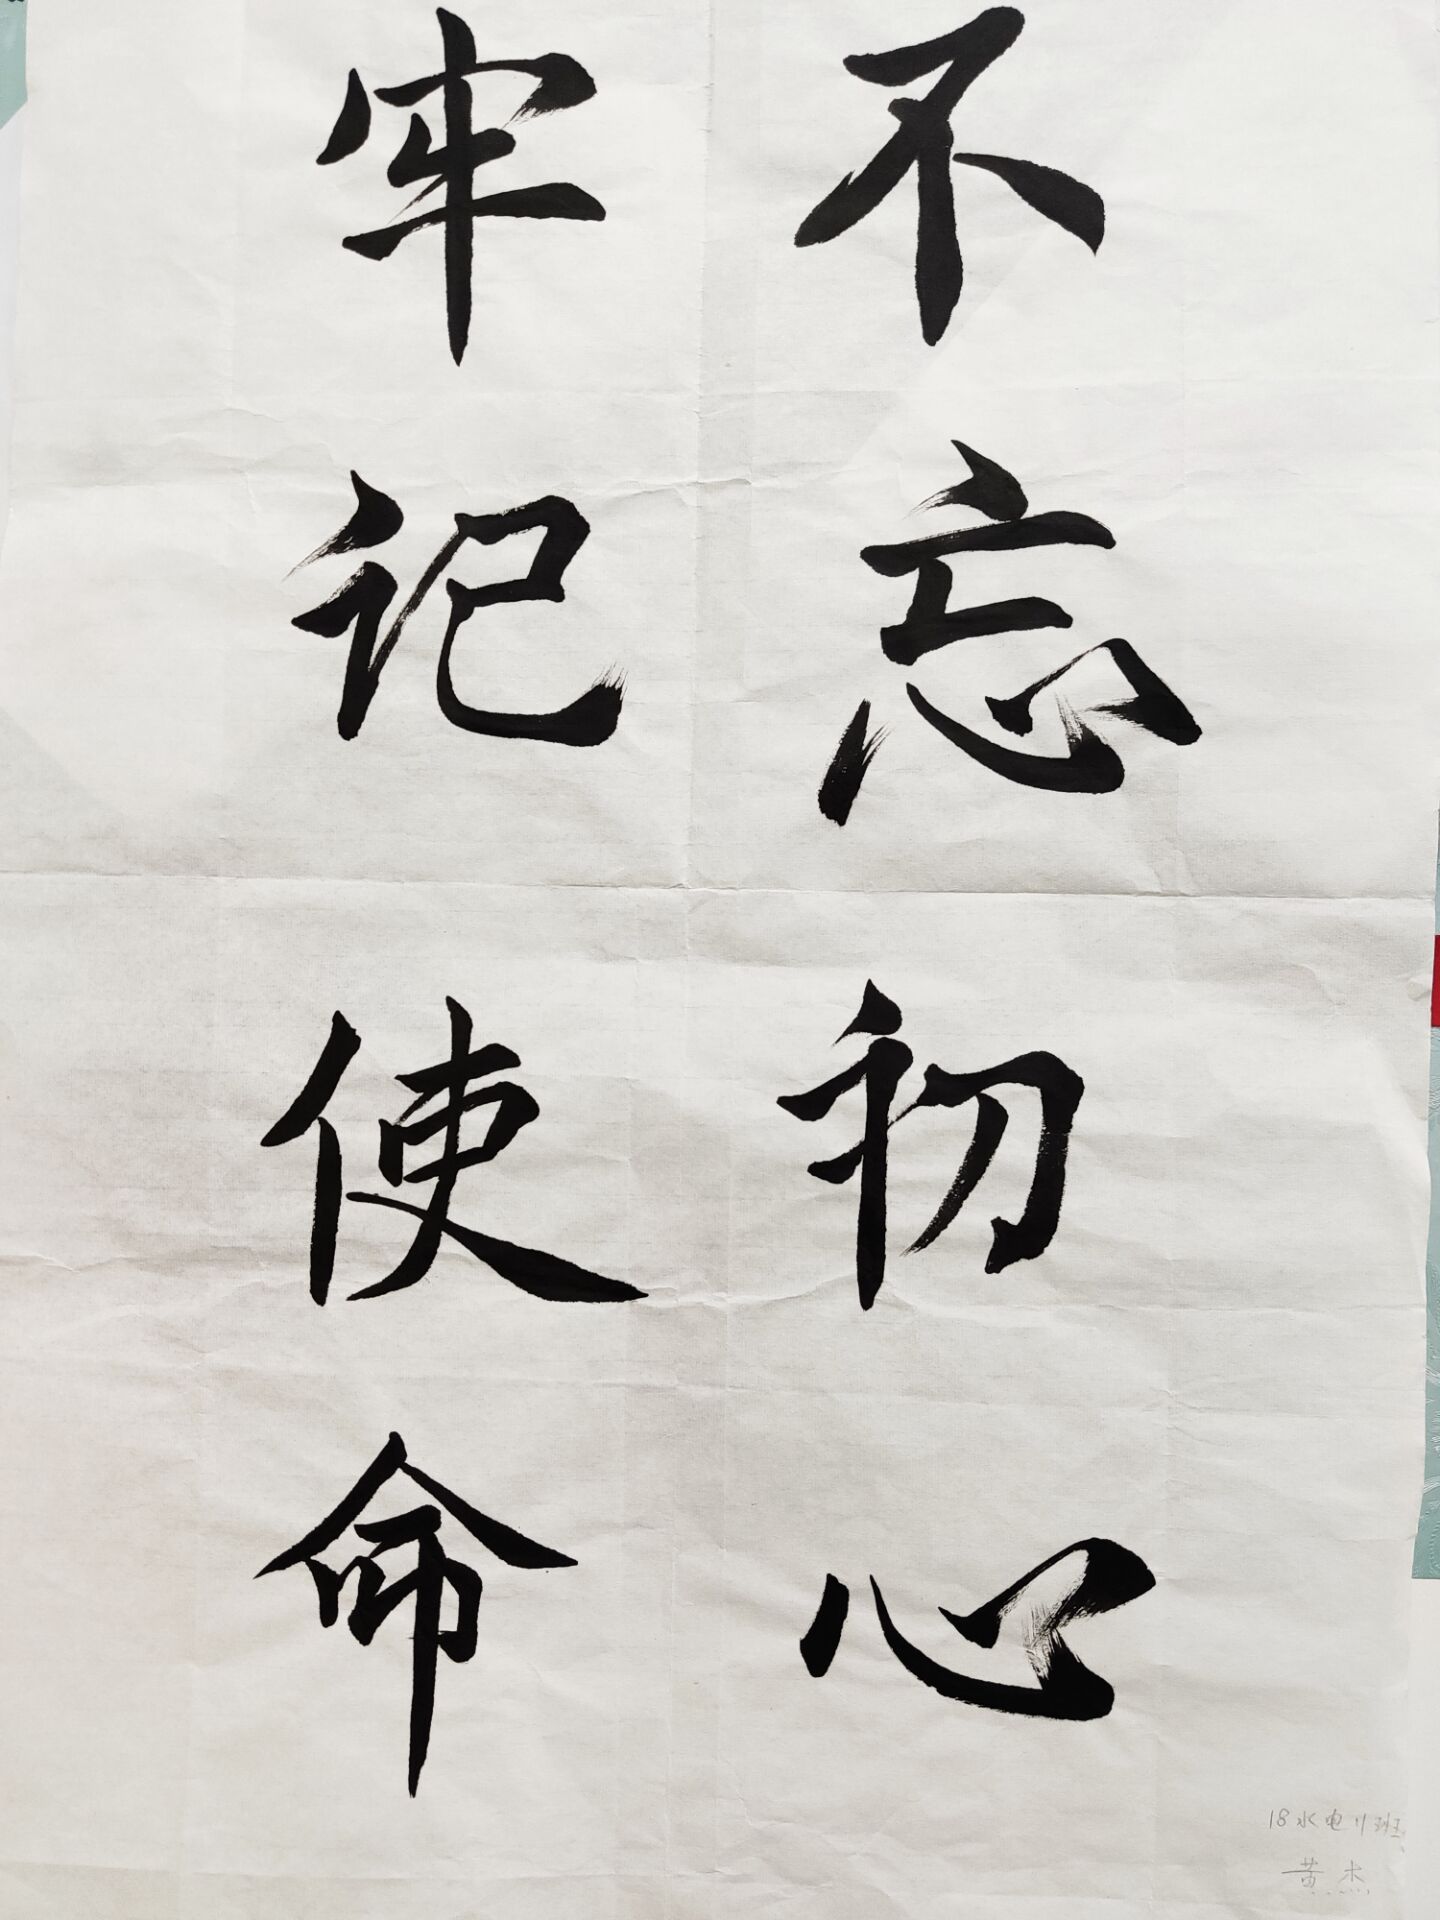 不忘初心
牢记使命
18水电11班
黄杰